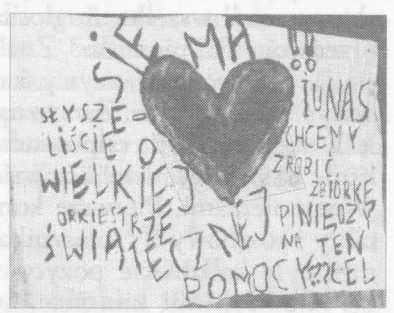 SIE MA !!
SŁYSZE-
LIŚCIE O
WIELKIEJ
ORKIESTRZE
ŚWIĄTECZNEJ
POMOCY???
I U NAS
CHCEMY
ZROBIĆ
ZBIÓRKĘ
PINIĘDZY
NA TEN
CEL